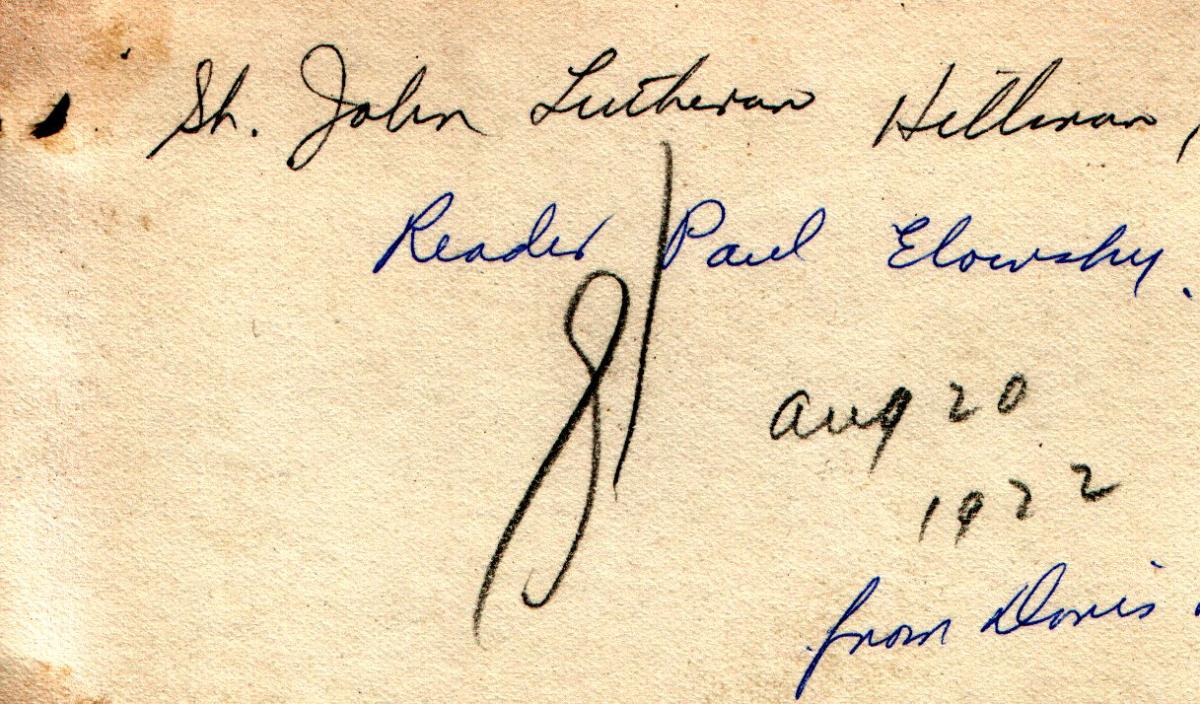 St. John Lutheran Hillman,
Reader Paul Elowsky.
81
Aug 20
1922
from Doris